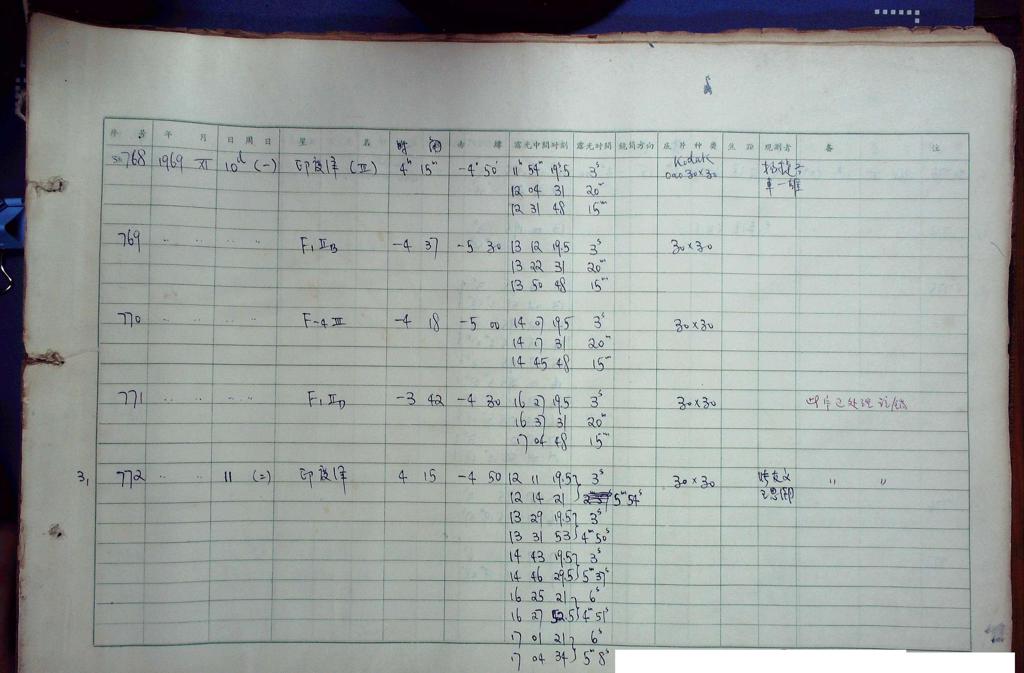 序号 年 月 日 周日 星 名 时 角 赤 纬 露光中间时刻 露光时间 镜筒方向 底片种类 焦距 观测者 备 注
768 1969 XI 10d (一) (II) 4h 15m -4° 50' 11h 54m 19.5 3s Kodak
12 04 31 20m 0a0 30×30
12 31 48 15m
769 .. .. .. .. F1 IIB -4 37 -5 30 13 12 19.5 3s 30×30
13 22 31 20m
13 50 48 15m
770 .. .. .. .. F-4 III -4 18 -5 00 14 07 19.5 3s 30×30
14 17 31 20m
14 45 48 15m
771 .. .. .. .. F1 IID -3 42 -4 30 16 27 19.5 3s 30×30 此片已处理
16 37 31 20m
17 04 48 15m
3, 772 .. .. 11 (二) 4 15 -4 50 12 11 19.5 3s 30×30 " "
12 14 21 5m 54s
13 29 19.5 3s
13 31 53 4m 50s
14 43 19.5 3s
14 46 29.5 5m 37s
16 25 21 6s
16 27 52.5 4m 51s
17 01 21 6s
17 04 34 5m 8s